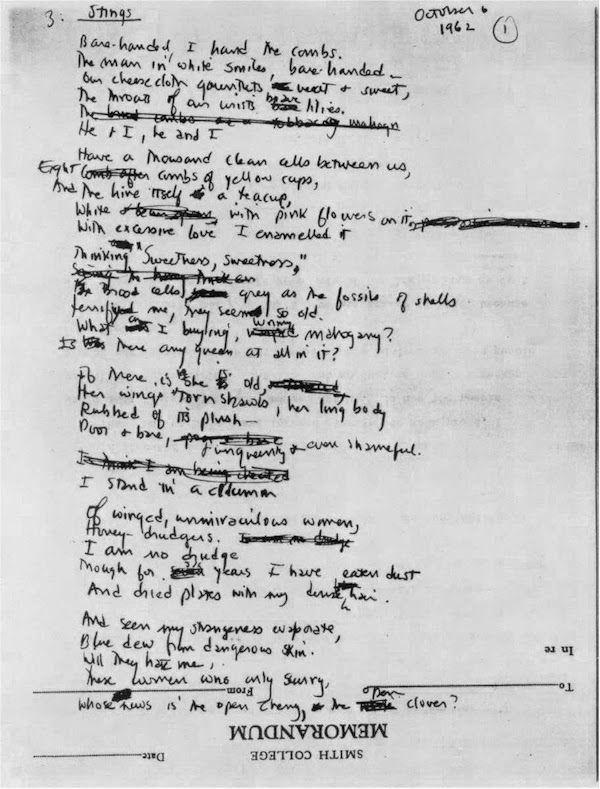 3. Stings
October 6
1962 1
Bare-handed, I hand the combs.
The man in white smiles, bare-handed—
Our cheesecloth gauntlets neat & sweet,
The throats of our wrists brave lilies.
The
He & I, he and I
Have a thousand clean cells between us,
Eight combs of yellow cups,
And The hive itself a teacup,
White with pink flowers on it,
With excessive love I enamelled it
Thinking "Sweetness, sweetness,"
Brood cells, grey as the fossils of shells
Terrify me, they seem so old.
What am I buying, wormy mahogany?
Is there any queen at all in it?
If there is, she is old,
Her wings torn shawls, her long body
Rubbed of its plush—
Poor & bare, & unqueenly & even shameful.
I think I am being cheated
I stand in a column
Of winged, unmiraculous women,
Honey-drudgers.
I am no drudge
Though for years I have eaten dust
And dried plates with my dense hair.
And seen my strangeness evaporate,
Blue dew from dangerous skin.
Will they hate me,
These women who only scurry,
Whose news is the open cherry, the open clover?
In re
To
From
MEMORANDUM
SMITH COLLEGE
Date